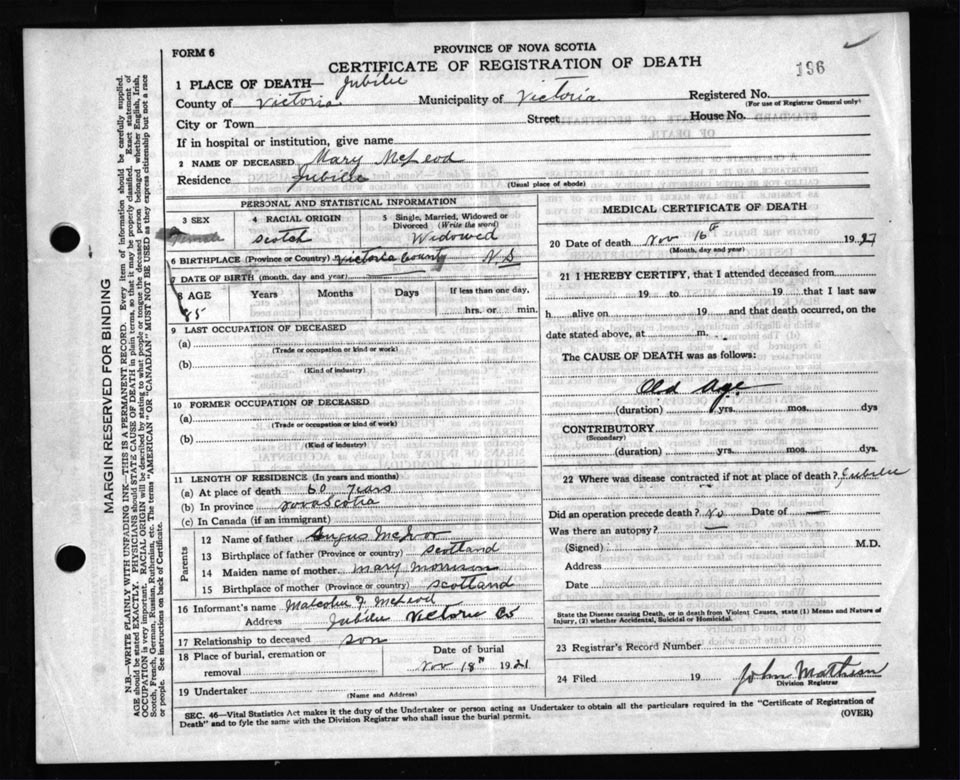 FORM 6
PROVINCE OF NOVA SCOTIA
CERTIFICATE OF REGISTRATION OF DEATH
196
1 PLACE OF DEATH— Jubilee
County of Victoria Municipality of Victoria Registered No.
(For use of Registrar General only)
City or Town Street House No.
If in hospital or institution, give name
2 NAME OF DECEASED Mary McLeod
Residence Jubilee
(Usual place of abode)
PERSONAL AND STATISTICAL INFORMATION
3 SEX
Female
4 RACIAL ORIGIN
Scotch
5 Single, Married, Widowed or Divorced (Write the word)
Widowed
6 BIRTHPLACE (Province or Country) Victoria County N S
7 DATE OF BIRTH (month, day and year)
8 AGE Years Months Days If less than one day,
85 hrs. or min.
9 LAST OCCUPATION OF DECEASED
(a)
(Trade or occupation or kind or work)
(b)
(Kind of industry)
10 FORMER OCCUPATION OF DECEASED
(a)
(Trade or occupation or kind of work)
(b)
(Kind of industry)
11 LENGTH OF RESIDENCE (In years and months)
(a) At place of death 60 Years
(b) In province Nova Scotia
(c) In Canada (if an immigrant)
Parents
12 Name of father Angus
13 Birthplace of father (Province or country) Scotland
14 Maiden name of mother Mary Morrison
15 Birthplace of mother (Province or country) Scotland
16 Informant's name Malcolm F McLeod
Address Jubilee Victoria Co
17 Relationship to deceased son
18 Place of burial, cremation or removal
Date of burial
Nov 18th 1921
19 Undertaker
(Name and Address)
MEDICAL CERTIFICATE OF DEATH
20 Date of death Nov 16th 19
(Month, day and year)
21 I HEREBY CERTIFY, that I attended deceased from
19 to 19 that I last saw
h alive on 19 and that death occurred, on the
date stated above, at m.
The CAUSE OF DEATH was as follows:
Old Age
(duration) yrs. mos. dys
CONTRIBUTORY
(Secondary)
(duration) yrs. mos. dys
22 Where was disease contracted if not at place of death? Jubilee
Did an operation precede death? No Date of —
Was there an autopsy? —
(Signed) M.D.
Address
Date
State the Disease causing Death, or in death from Violent Causes, state (1) Means and Nature of
Injury, (2) whether Accidental, Suicidal or Homicidal.
23 Registrar's Record Number
24 Filed 19 John Mathison
Division Registrar
SEC. 46—Vital Statistics Act makes it the duty of the Undertaker or person acting as Undertaker to obtain all the particulars required in the "Certificate of Registration of
Death" and to fyle the same with the Division Registrar who shall issue the burial permit.
(OVER)
MARGIN RESERVED FOR BINDING
N.B.—WRITE PLAINLY WITH UNFADING INK—THIS IS A PERMANENT RECORD. Every item of information should be carefully supplied.
AGE should be stated EXACTLY. PHYSICIANS should STATE CAUSE OF DEATH in plain terms, so that it may be properly classified. Exact statement of
OCCUPATION is very important. RACIAL ORIGIN will be described by stating to what people or tongue the deceased person belonged whether English, Irish,
Scotch, French, German, Russian, Ruthenian, etc. The terms "AMERICAN" OR "CANADIAN" MUST NOT BE USED as they express citizenship but not a race
or people. See instructions on back of Certificate.